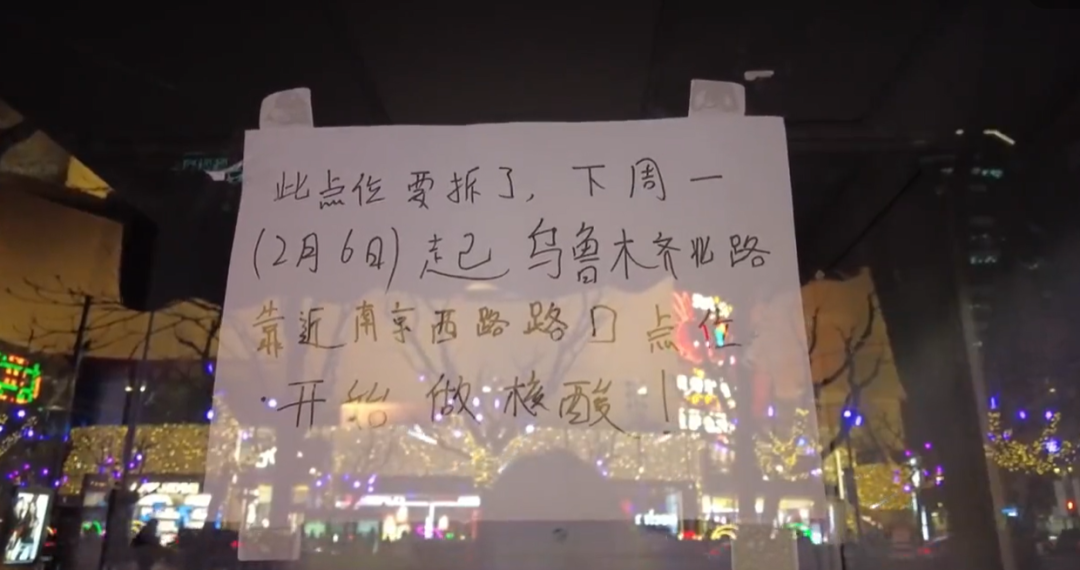 此点位要拆了，下周一
(2月6日)起乌鲁木齐北路
靠近南京西路路口点位
开始做核酸！